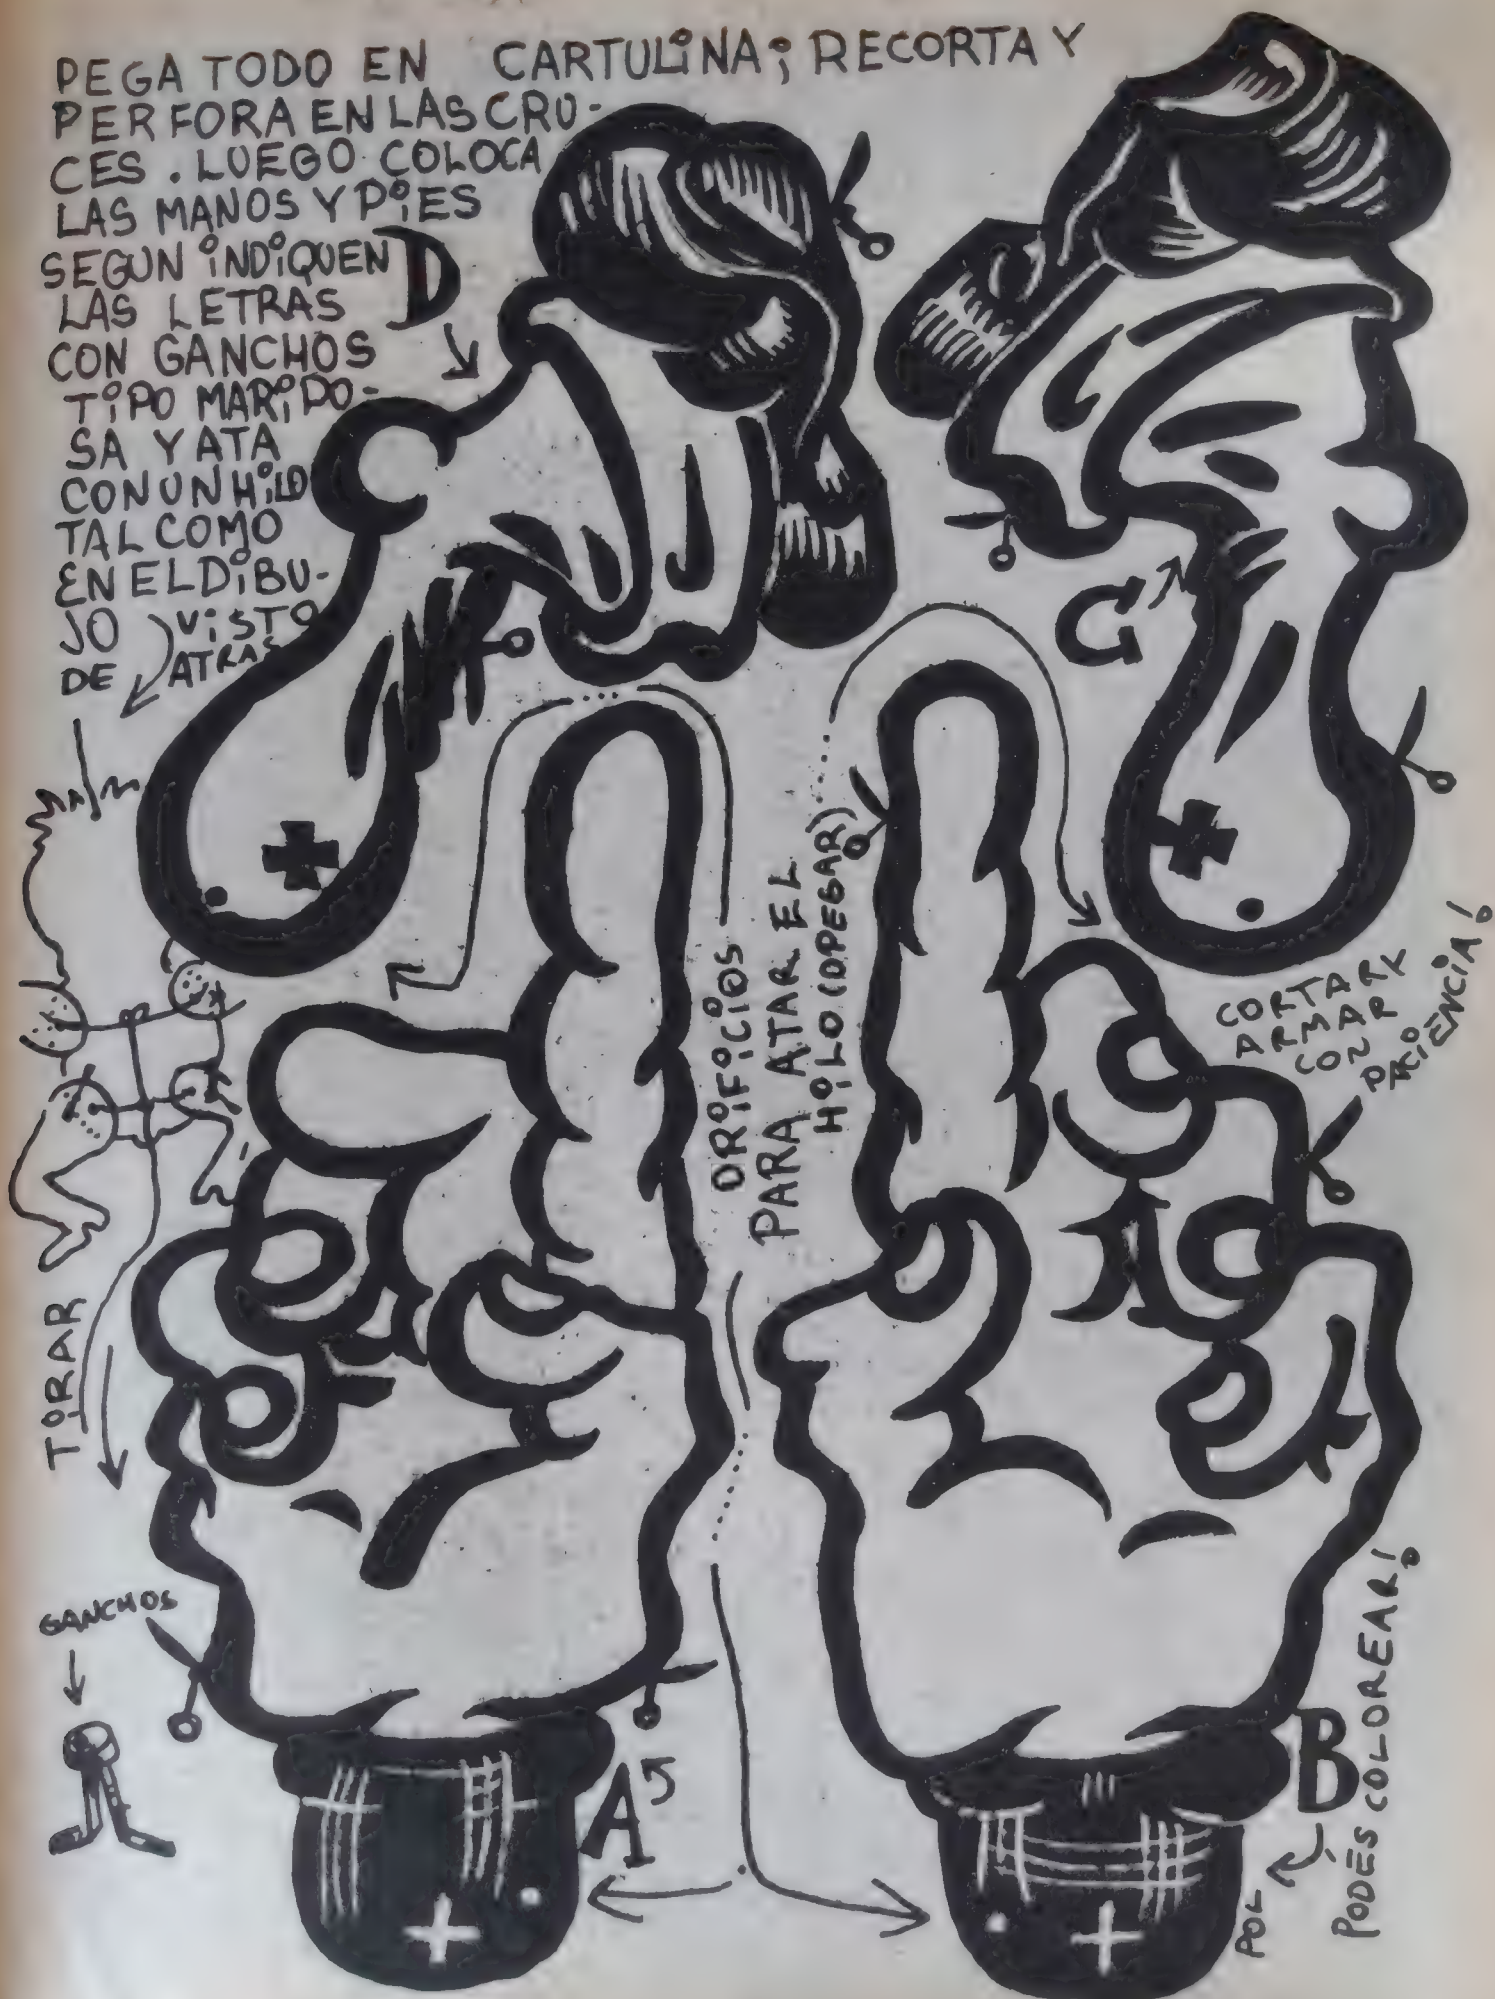 PEGA TODO EN CARTULINA; RECORTA Y
PERFORA EN LAS CRU-
CES. LUEGO COLOCA
LAS MANOS Y PIES
SEGUN INDIQUEN
LAS LETRAS
CON GANCHOS
TIPO MARIPO-
SA Y ATA
CON UN HILO
TAL COMO
EN EL DIBU-
JO
VISTO
DE
ATRAS
D
C
ORIFICIOS
PARA ATAR EL
HILO (O PEGAR)
CORTAR Y
ARMAR
CON
PACIENCIA!
TIRAR
GANCHOS
A
B
PODÉS COLOREAR!
POL